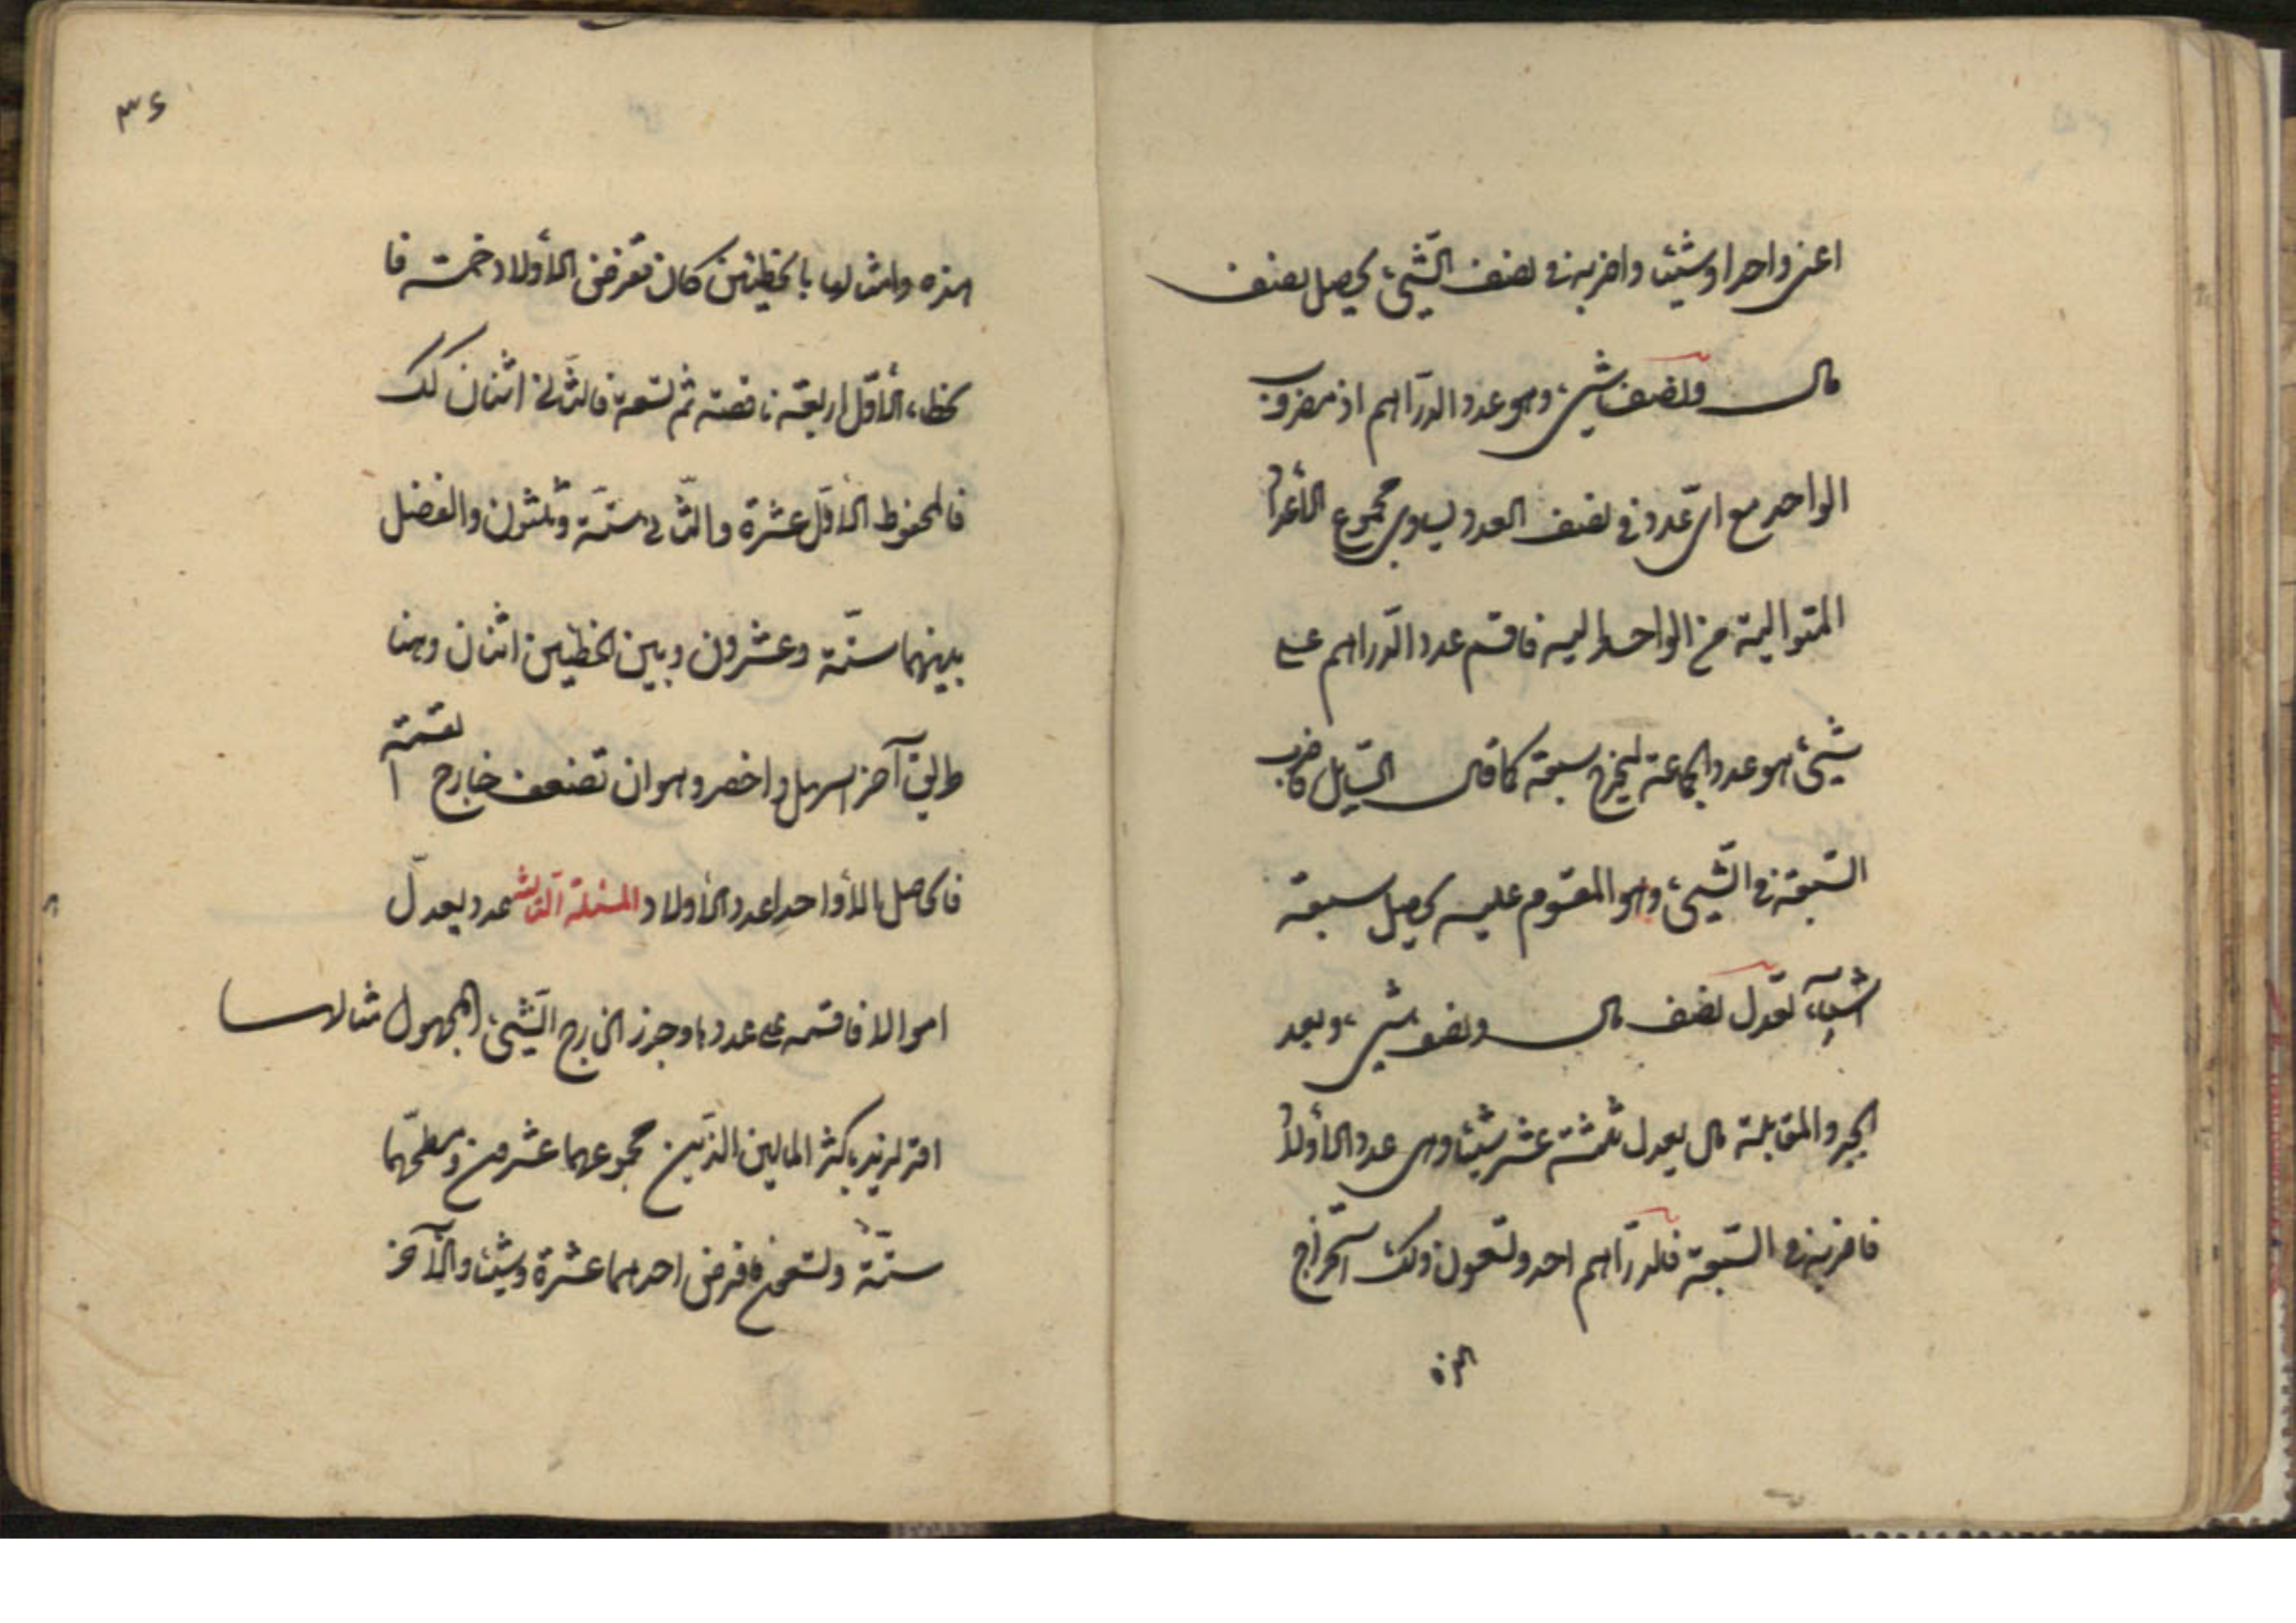 اعنی واحدا وشیئا واضربه فی نصف الشّیء یحصل نصف
مال ونصف شیء وهو عدد الدّراهم اذ مضروب
الواحد مع ایّ عدد فی نصف العدد یساوی مجموع الأعداد
المتوالیة من الواحد الیه فاقسم عدد الدّراهم علی
شیء هو عدد الجماعة لیخرج سبعة کما قال السّایل فاضرب
السّبعة فی الشّیء وهو المقسوم علیه یحصل سبعة
اشیآء تعدل نصف مال ونصف شیء وبعد
الجبر والمقابلة مال یعدل ثلثة عشر شیئا وهی عدد الأولاد
فاضربه فی السّبعة فالدّراهم احد وتسعون ولک استخراج
هذه
۳۶
هذه وامثالها بالخطائین کان تفرض الأولاد خمسة فا
لخطاء الأوّل اربعة ناقصة ثم تسعة فالثّانی اثنان کک
فالمحفوظ الأوّل عشرة والثّانی ستّة وثلثون والفضل
بینهما ستّة وعشرون وبین الخطائین اثنان وهنا
طریق آخر اسهل واخصر وهو ان تضعف خارج ا
لقسمة
فالحاصل الا واحدا عدد الأولاد المسئلة الثّالثة عدد یعدل
اموالا فاقسمه علی عددها وجذر الخارج الشّیء المجهول مثالها
اقر لزید باکثر المالین الذین مجموعهما عشرون ومسطّحهما
ستّة وتسعون فافرض احدهما عشرة وشیئا والآخر